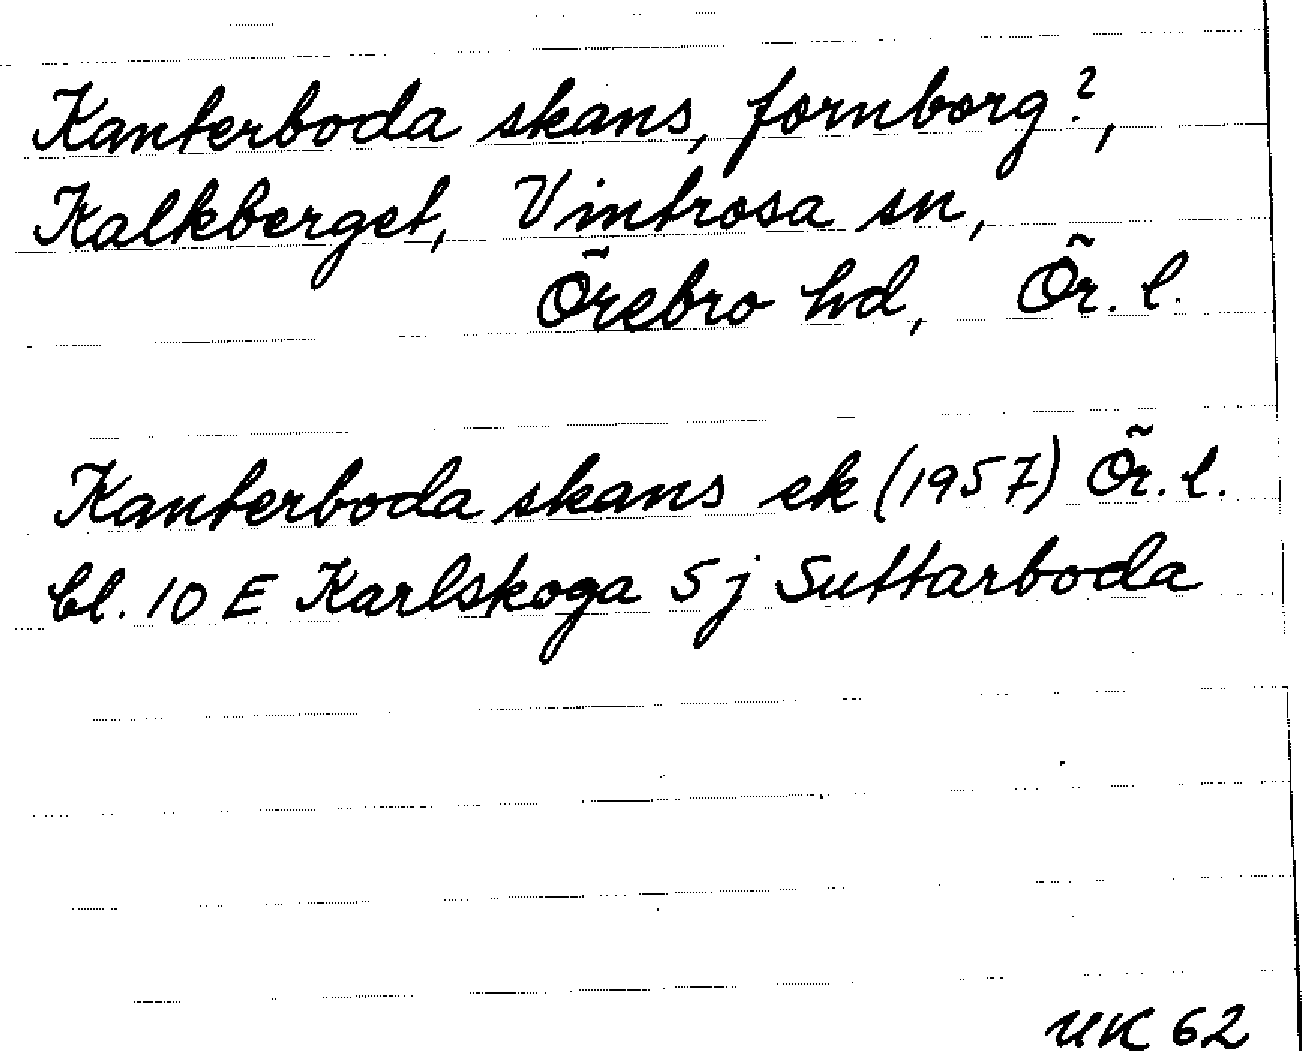 Kanterboda skans, fornborg?,
Kalkberget, Vintrosa sn,
Örebro hd, Ör. l.
Kanterboda skans ek (1957) Ör. l.
bl. 10 E Karlskoga 5j Suttarboda
UK 62